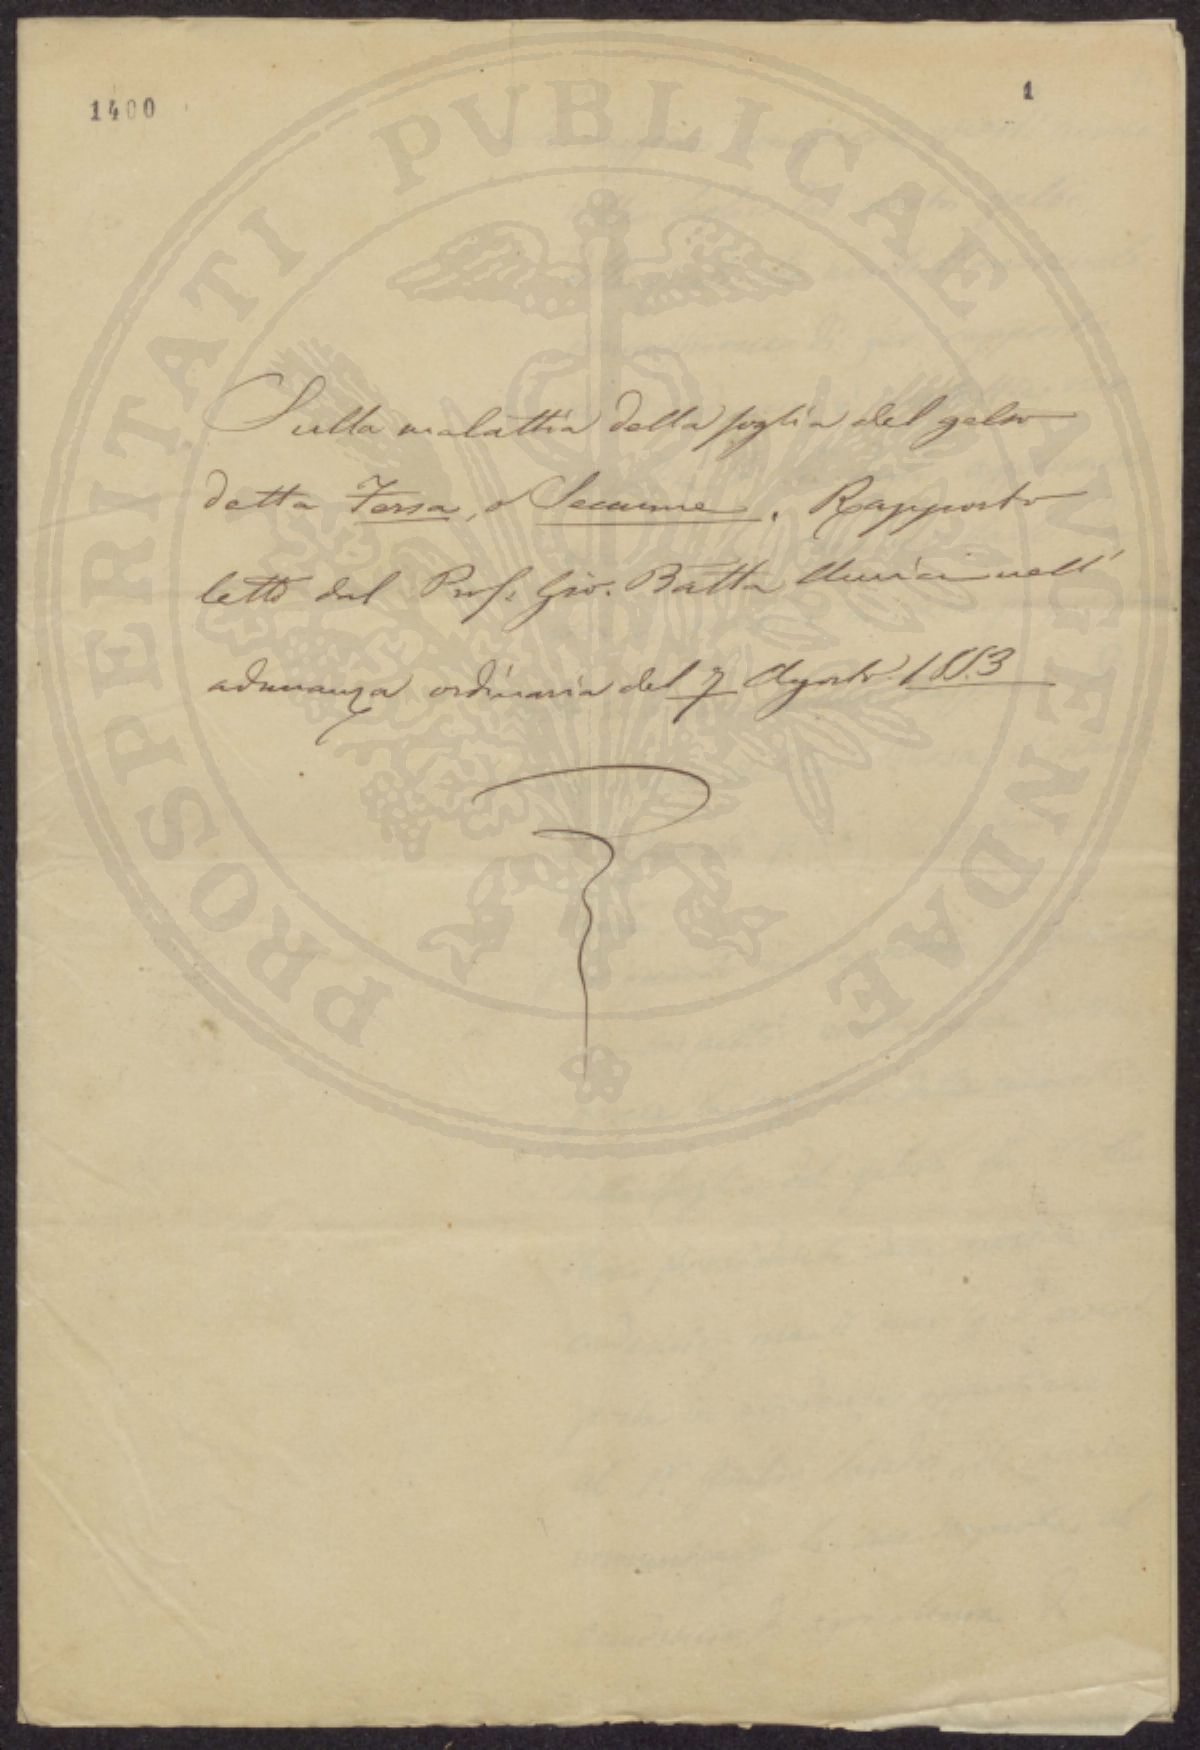 1400
1
PROSPERITATI PVBLICAE AVGENDAE
Sulla malattia della foglia del gelso
detta Fersa, o Seccume. Rapporto
letto dal Prof. Gio. Batta nell'
adunanza ordinaria del 7 Agosto 1853